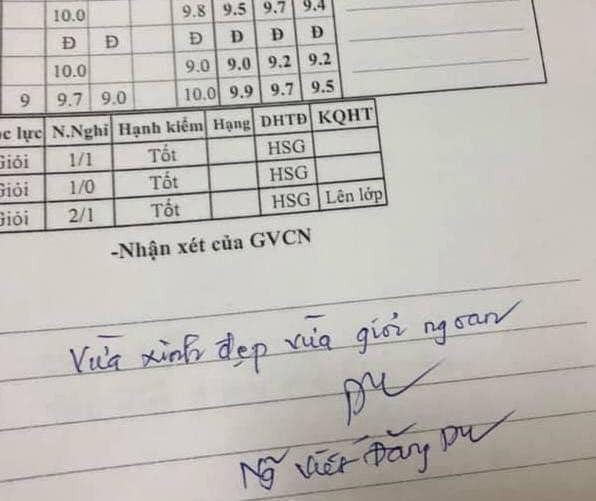 10.0 9.8 9.5 9.7 9.4
Đ Đ Đ Đ Đ Đ
10.0 9.0 9.0 9.2 9.2
9 9.7 9.0 10.0 9.9 9.7 9.5
ọc lực N.Nghỉ Hạnh kiểm Hạng DHTĐ KQHT
Giỏi 1/1 Tốt HSG
Giỏi 1/0 Tốt HSG
Giỏi 2/1 Tốt HSG Lên lớp
-Nhận xét của GVCN
Vừa xinh đẹp vừa giỏi ngoan
Viết Đăng